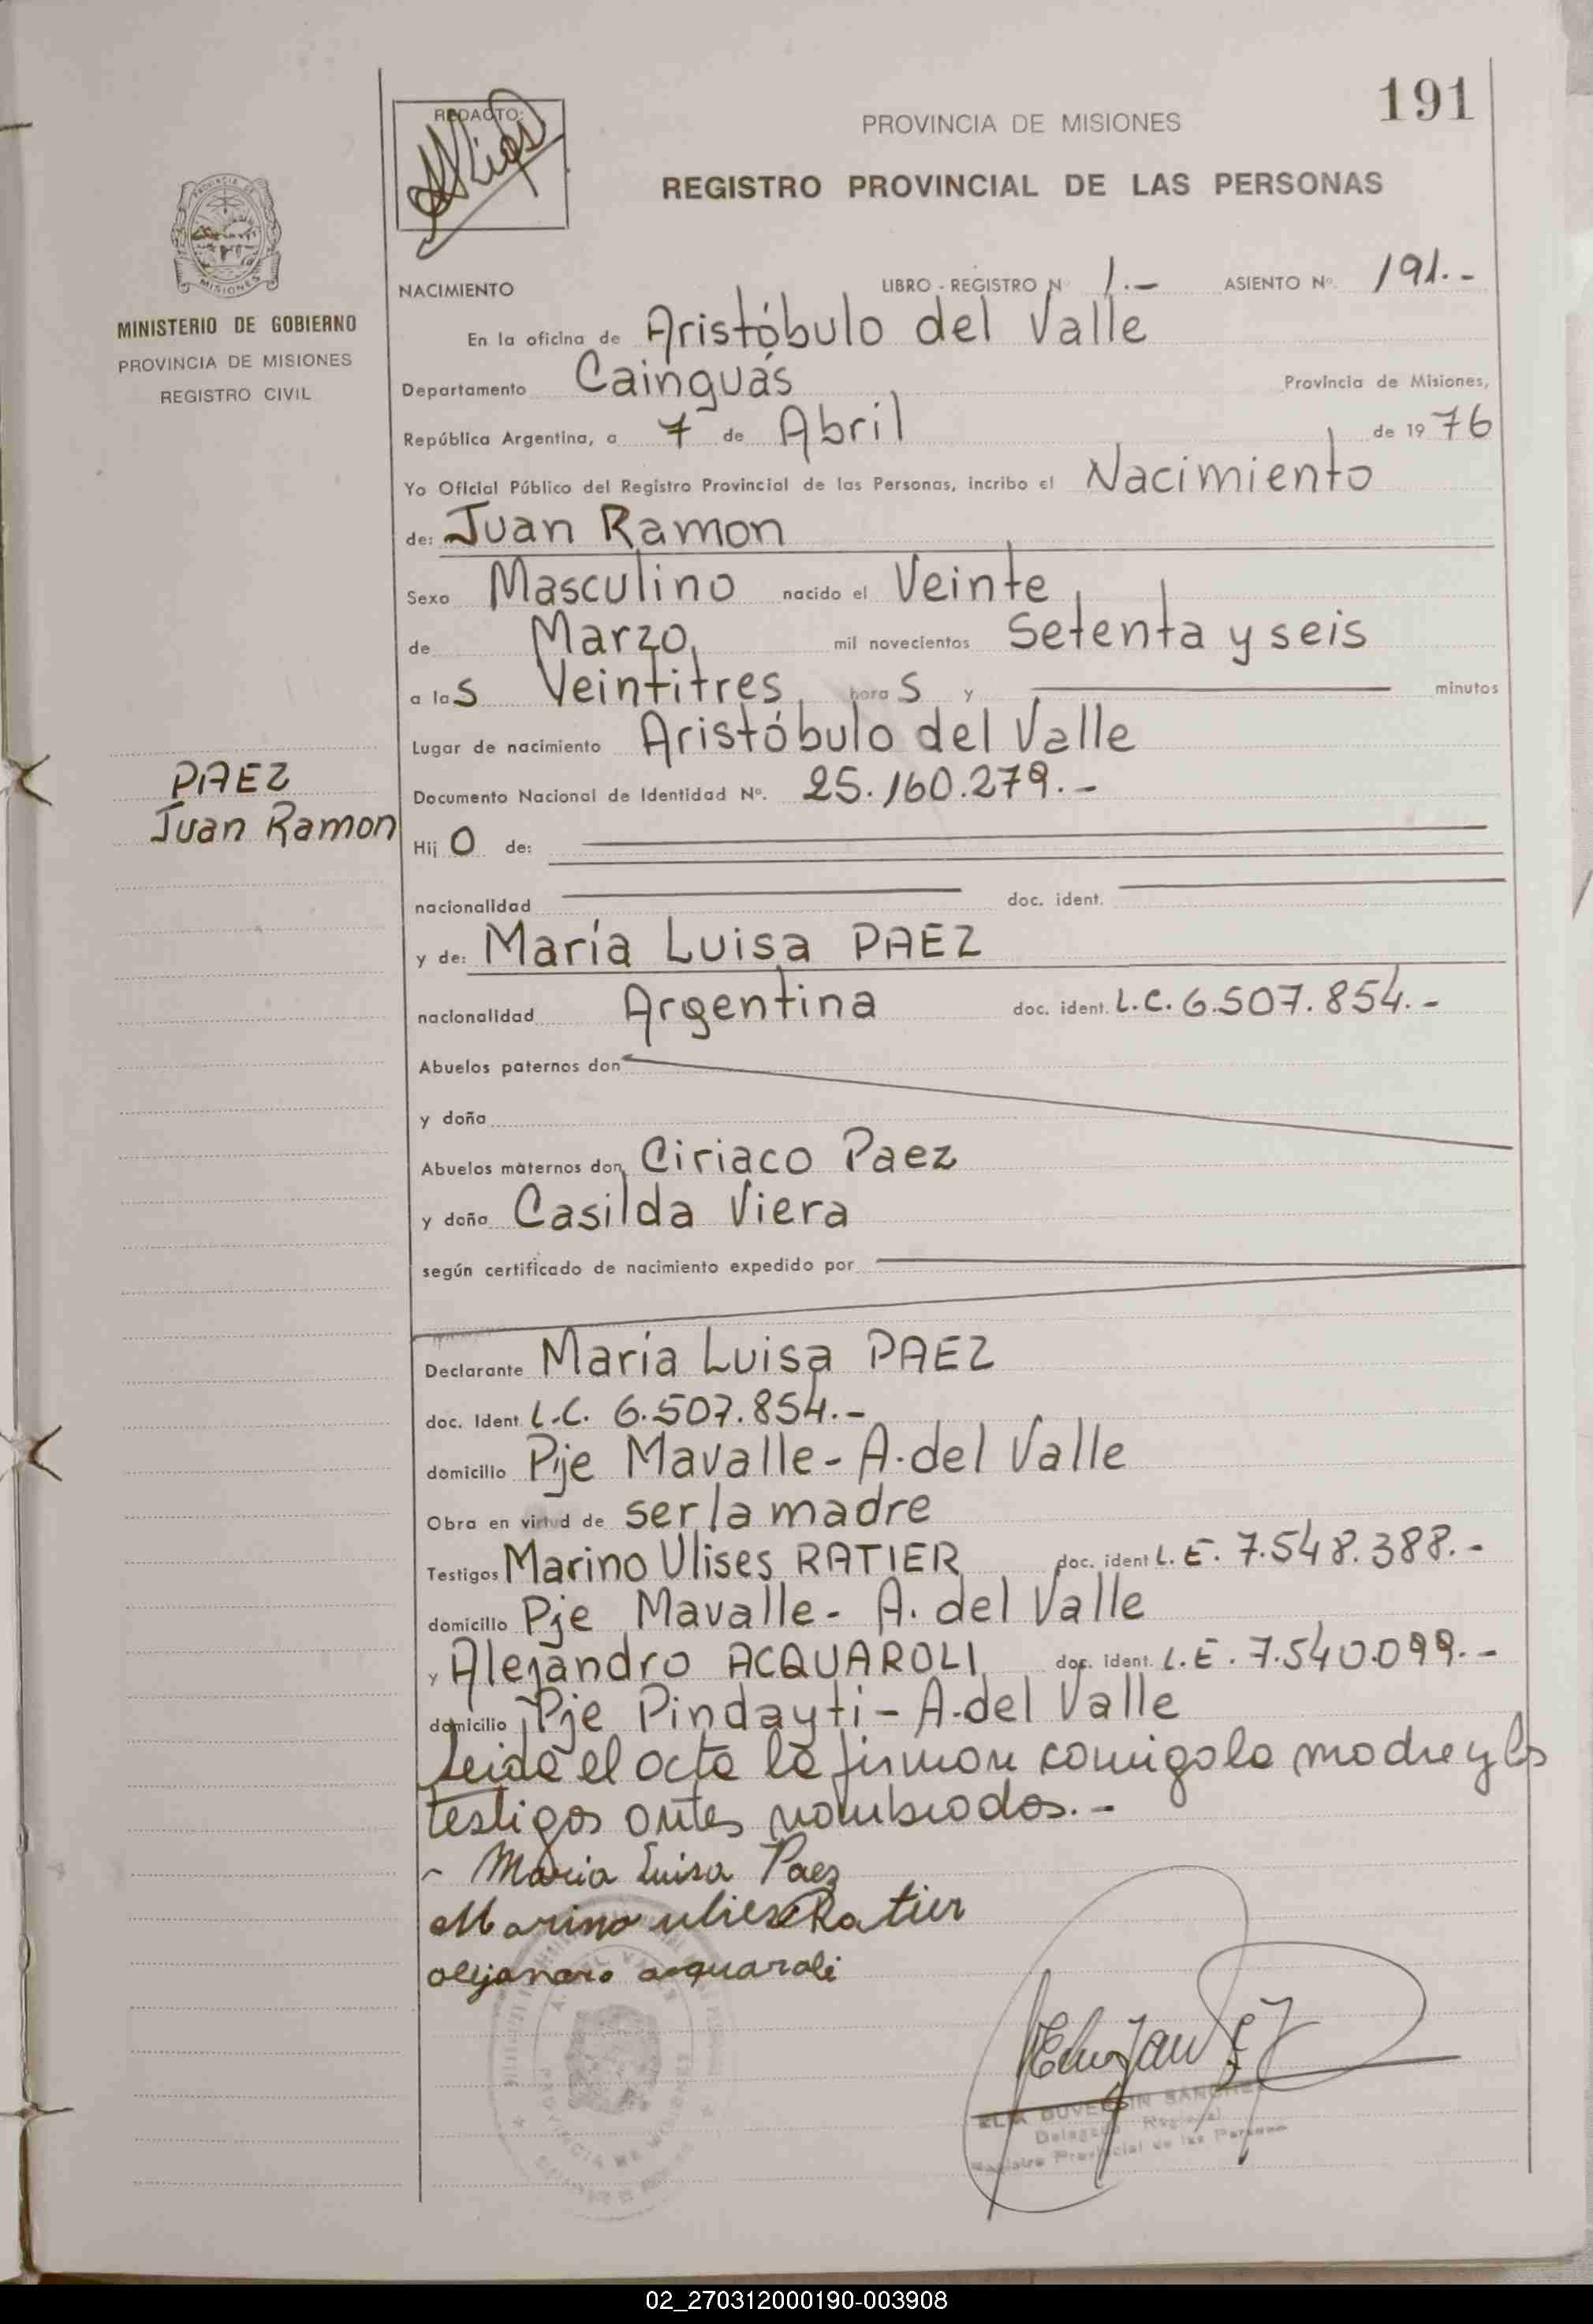 191
REDACTO:
PROVINCIA DE MISIONES
REGISTRO PROVINCIAL DE LAS PERSONAS
MISIONES
MINISTERIO DE GOBIERNO
PROVINCIA DE MISIONES
REGISTRO CIVIL
NACIMIENTO LIBRO - REGISTRO Nº 1.- ASIENTO Nº. 191.-
En la oficina de Aristóbulo del Valle
Departamento Cainguás Provincia de Misiones,
República Argentina, a 7 de Abril de 19 76
Yo Oficial Público del Registro Provincial de las Personas, incribo el Nacimiento
de: Juan Ramon
Sexo Masculino nacido el Veinte
de Marzo mil novecientos Setenta y seis
a las Veintitres horas y minutos
Lugar de nacimiento Aristóbulo del Valle
PAEZ
Juan Ramon
Documento Nacional de Identidad Nº. 25.160.279.-
Hijo de:
nacionalidad doc. ident.
y de: María Luisa PAEZ
nacionalidad Argentina doc. ident. L.C. 6.507.854.-
Abuelos paternos don
y doña
Abuelos maternos don Ciriaco Paez
y doña Casilda Viera
según certificado de nacimiento expedido por
Declarante María Luisa PAEZ
doc. Ident. L.C. 6.507.854.-
domicilio Pje Mavalle - A. del Valle
Obra en virtud de ser la madre
Testigos Marino Ulises RATIER doc. ident L.E. 7.548.388.-
domicilio Pje Mavalle - A. del Valle
y Alejandro ACQUAROLI doc. ident. L.E. 7.540.099.-
domicilio Pje Pindayti - A. del Valle
Leida el acta la firman comigo la madre y los
testigos antes nombrados.-
- Maria Luisa Paez
Marino ulises Ratier
alejanaro acquaroli
PROVINCIA DE MISIONES
Delegada Regional
Registro Provincial de las Personas
02_270312000190-003908